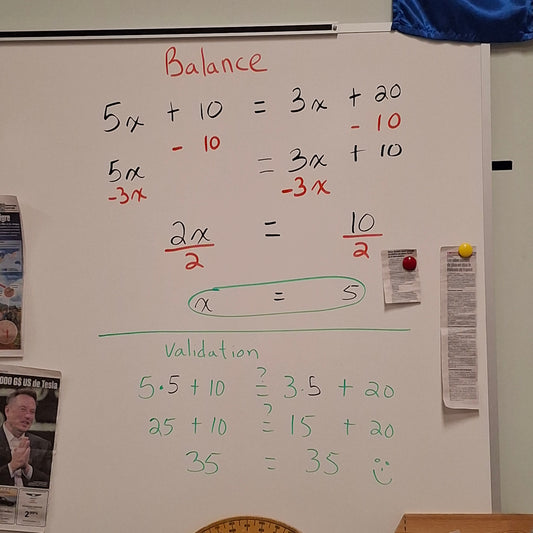 Balance
5x + 10 = 3x + 20
- 10 - 10
5x = 3x + 10
-3x -3x
2x = 10
2 2
x = 5
Validation
5•5 + 10 ≟ 3.5 + 20
25 + 10 ≟ 15 + 20
35 = 35
000 G$ US de Tesla